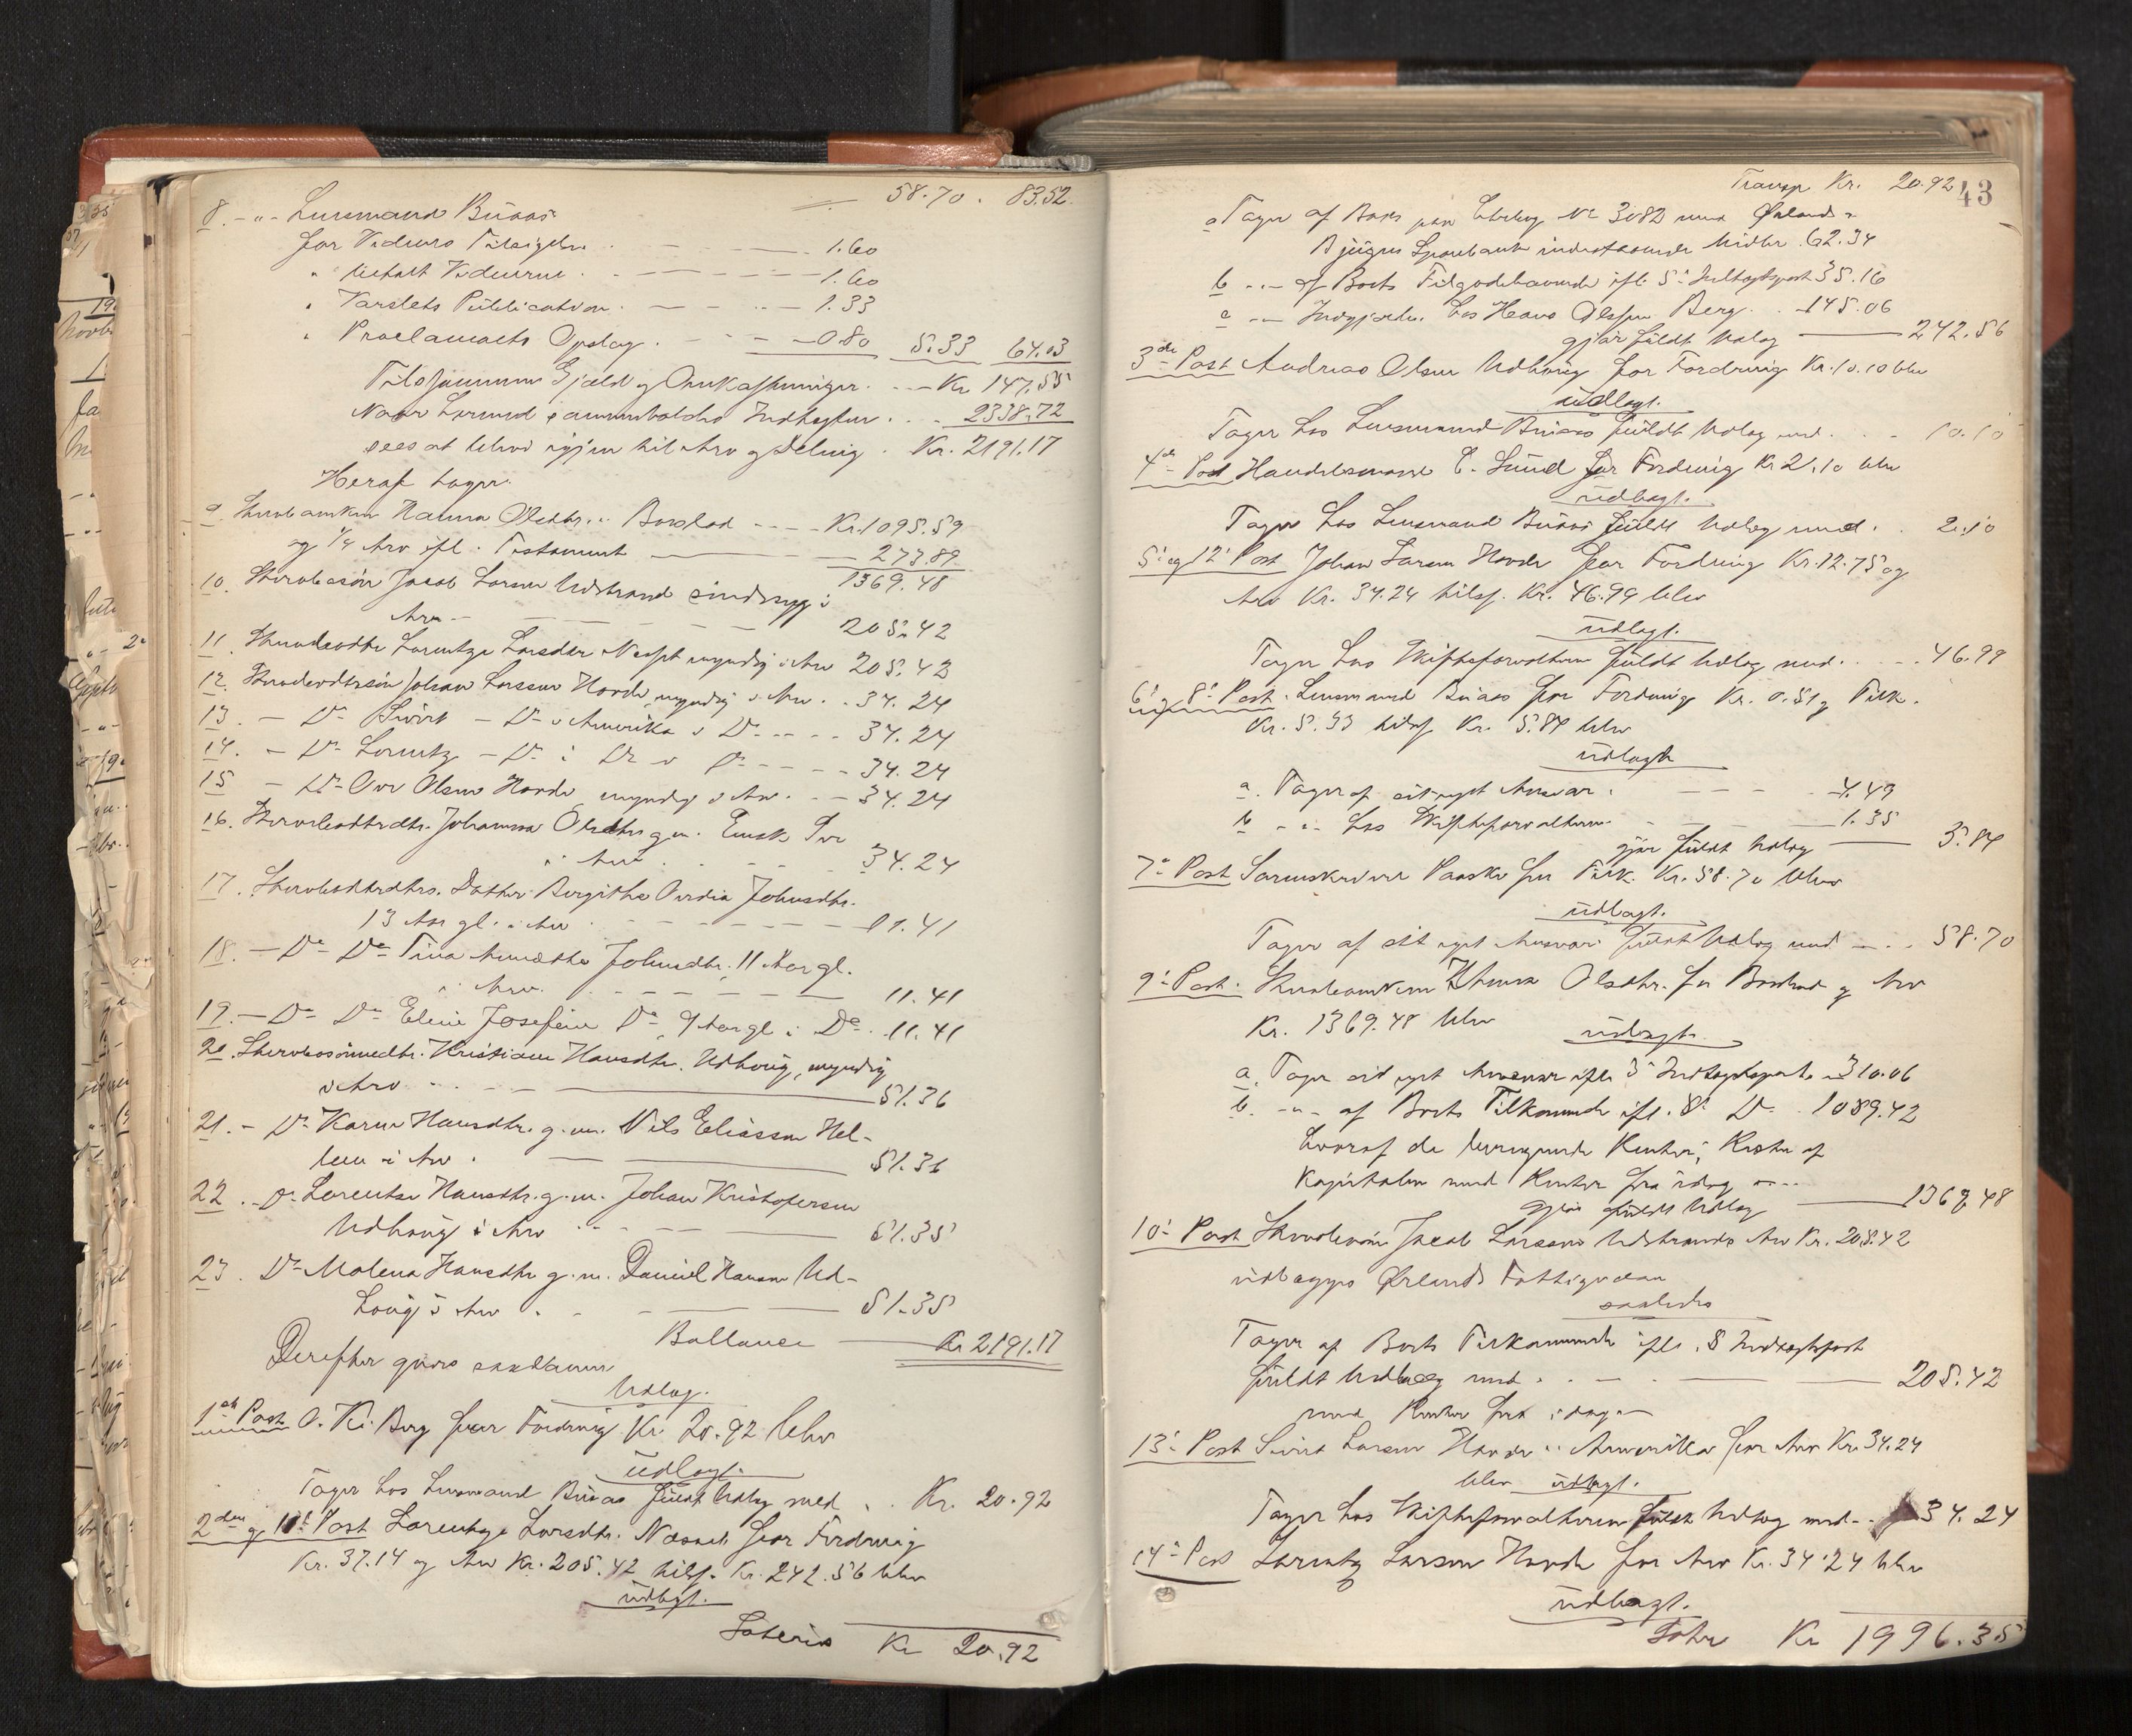 58.70. 83.52
8. -"- Lensmand Büaas
for Vidners Tilsigelse . . 1.60
" betalt Vidnerne . 1.60
" Varslets Publication . 1.33
" Proclamaets Opslag . 0.80 5.33 64.03
Tilsammen Gjæld og Omkostninger . Kr 147.55
Naar hermed sammenholdes Indtægten . . 2338.72
sees at blive igjen til Arv og Deling . Kr. 2191.17
Heraf tager
9. Enken Hanna Olsdtr. i Boslod Kr. 1095.59
og 1/4 Arv ifl. Testament 273.89
1369.48
10. Stervbosøn Jacob Larsen Udstrand sindssyg i
Arv 205.42
11. Stervbodtr Lorentze Larsdtr Næsset myndig i Arv 205.42
12. Stervbodtrsøn Johan Larsen Hovde, myndig i Arv . . 34.24
13. - Do Sivert - Do i Amerika i Do 34.24
14. - Do Lorentz - Do i Do i Do 34.24
15 - Do Ove Olsen Hovde myndig i Arv . 34.24
16. Stervbodtrdtr. Johanna Olsdtr g.m.
i Arv . 34.24
17. Stervbodtrdtrs. Datter Bergitha Johnsdtr.
13 Aar gl. i Arv 11.41
18. - Do Do Tina Johnsdtr. 11 Aar gl.
i Arv. 11.41
19. - Do Do Eline Josefine Do 9 Aar gl i Do . 11.41
20. Stervbosønnedtr. Kristiane Hansdtr. Udhoug, myndig
i Arv 51.36
21. - Do Karen Hansdtr. g.m. Nils Eliassen Hel-
lem i Arv . 51.36
22. - Do Lorentse Hansdtr. g.m. Johan Kristofersen
Udhoug i Arv 51.35
23. Do Malena Hansdtr g.m. Daniel Hansen Ud-
houg i Arv . 51.35
Ballance Kr 2191.17
Derefter gjøres saadanne
Udlæg.
1ste Post O. Berg for Fordring Kr 20.92 blev
udlagt.
Tager hos Lensmand Büaas fuldt Udlæg med . . Kr. 20.92
2den og 11te Post Lorentze Larsdtr. Næsset for Fordring
Kr. 37.14 og Arv Kr. 205.42 tils. Kr. 242.56 blev
udlagt.
Lateris Kr 20.92
Transp Kr. 20.92
43
a Tager af Boets paa No 3082 med Ørlands
Bjugns Sparebank indestaaende Midler 62.34
b -"- af Boets Tilgodehavende ifl. 5te Indtægtspost 35.16
c -"- hos Hans Olsen Berg . 145.06
gjør fuldt Udlæg 242.56
3die Post Andreas Olsen Udhoug for Fordring Kr. 10.10 blev
udlagt.
Tager hos Lensmand Büaas fuldt Udlæg med . . 10.10
4de Post Handelsmand E. Lund for Fordring Kr 2.10 blev
udlagt.
Tager hos Lensmand Büaas fuldt Udlæg med . . 2.10
5te og 12te Post Johan Larsen Hovde for Fordring Kr. 12.75 og
Arv Kr. 34.24 tils. Kr. 46.99 blev
udlagt.
Tager hos Skifteforvalteren fuldt Udlæg med . . 46.99
6te og 8de Post. Lensmand Büaas for Fordring Kr. 0.51 og Tilk.
Kr. 5.33 tils. Kr. 5.84 blev
udlagt
a. Tager af eit eget Ansvar . 4.49
b -"- hos Skifteforvalteren 1.35
gjør fuldt Udlæg 5.84
7de Post Sorenskriver Paaske for Tilk. Kr. 58.70 blev
udlagt.
Tager af sit eget Ansvar fuldt Udlæg med . . 58.70
9de Post. Enken Hanna Olsdtr. for Boslod og Arv
Kr. 1369.48 blev udlagt.
a. Tager sit eget Ansvar ifl. 3die Indtægtspost 310.06
b. -"- af Boets Tilkommende ifl. 8de Do . 1089.42
hvoraf de Renter, Resten af
Kapitalen med Renter fra idag
gjør fuldt Udlæg 1369.48
10de Post Stervbosøn Jacob Larsen Udstrands Arv Kr. 205.42
udlægges Ørlands Fattigvæsen
saaledes
Tager af Boets Tilkommende ifl. 8 Indtægtspost
fuldt Udlæg med . . 205.42
med Renter fra idag
13de Post Sivert Larsen Hovde i Amerika for Arv Kr. 34.24
blev udlagt.
Tager hos Skifteforvalteren fuldt Udlæg med 34.24
14de Post Lorentz Larsen Hovde for Arv Kr. 34.24 blev
udlagt.
Kr 1996.35